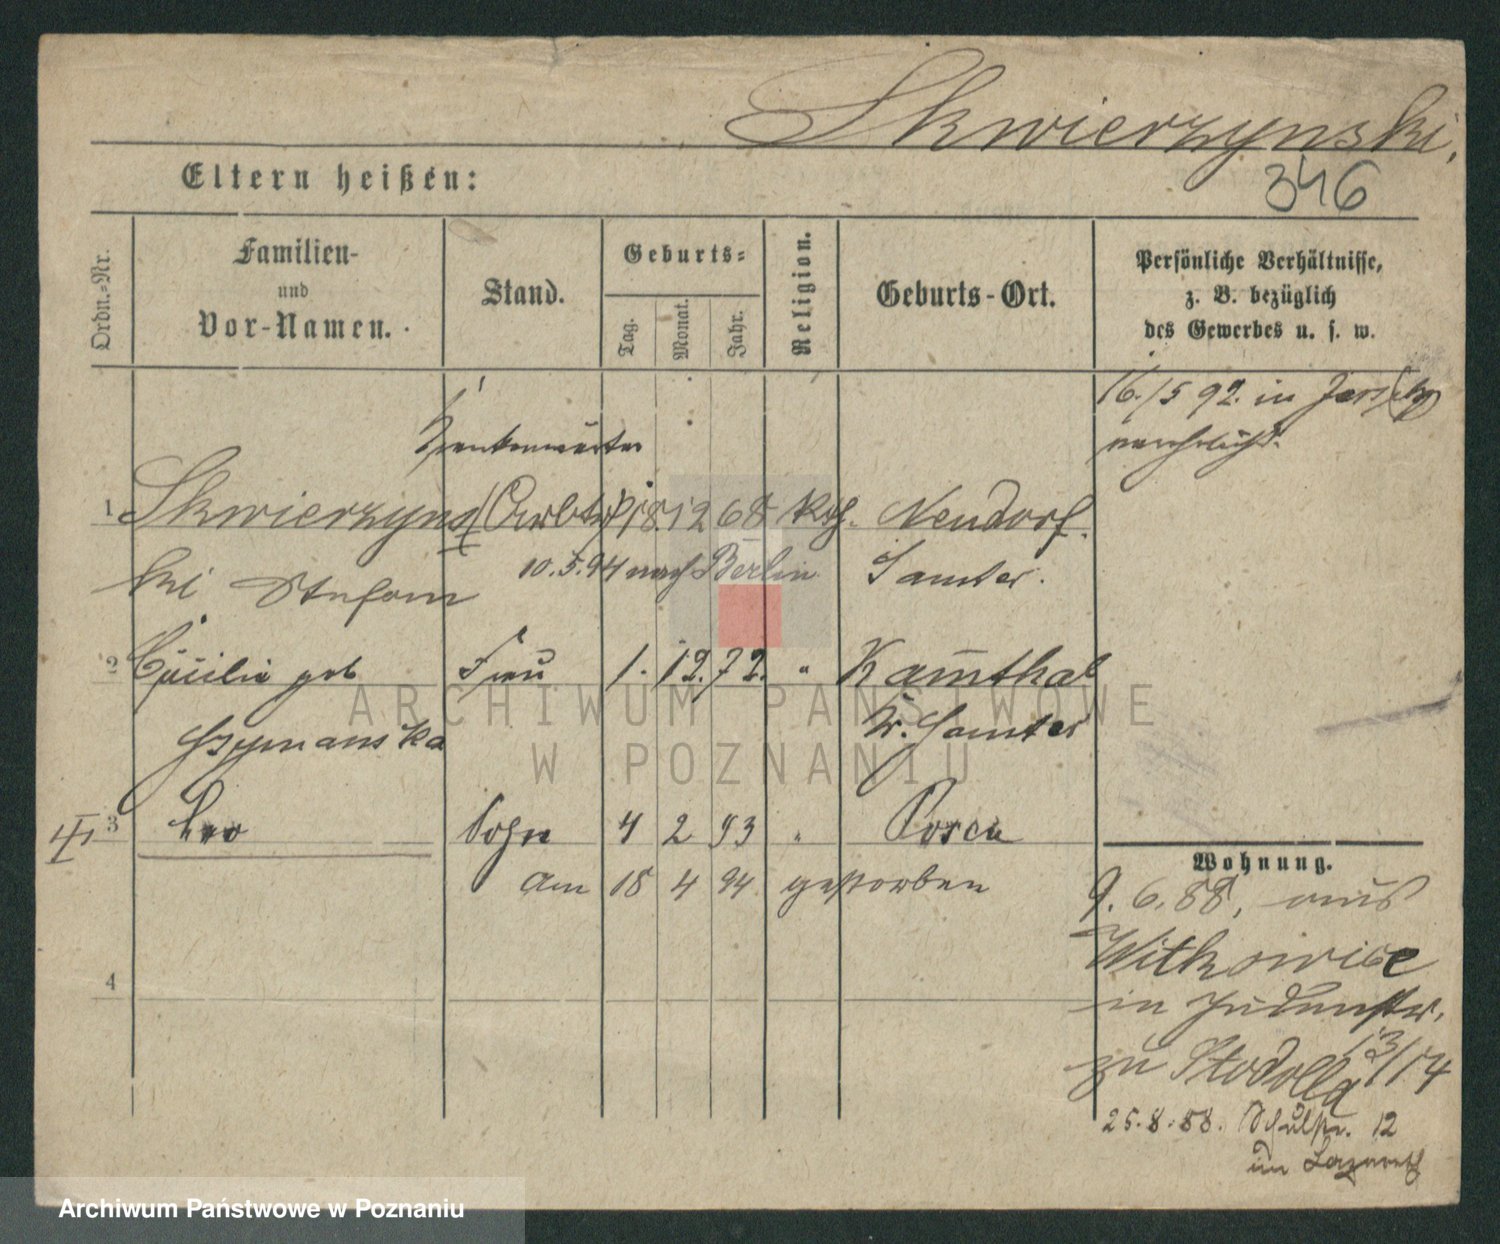 Skwierzynski.
346
Eltern heißen:
Ordn.-Nr.
Familien-
und
Vor-Namen.
Stand.
Geburts-
Tag.
Monat.
Jahr.
Religion.
Geburts-Ort.
Persönliche Verhältnisse,
z. B. bezüglich
des Gewerbes u. s. w.
16./5 92. in Jersitz
verehelicht.
Krankenwärter
1 Skwierzyns (Arbtr) 18 12 68 kth. Neudorf.
ki Stefan 10.5.94 nach Berlin Samter.
2 Cäcilie geb Frau 1. 12. 72. " Kamthal
Szymanska Kr. Samter
3 Leo Sohn 4 2 93 " Posen
am 18 4 94 gestorben
Wohnung.
9.6.88. aus
Witkowice
in Judenstr.
13/14
zu Stodolla
4
25.8.88. Schulstr. 12
im Lazareth
ARCHIWUM PAŃSTWOWE
W POZNANIU
Archiwum Państwowe w Poznaniu